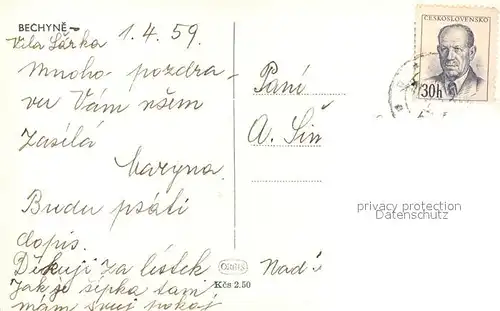 BECHYNĚ –
Vila Šárka 1. 4. 59.
Mnoho pozdra-
vu Vám všem
zasílá
Maryna.
Budu psáti
dopis.
Děkuji za lístek
Jak je šipka tam
mám svůj pokoj
Orbis
Kčs 2.50
ČESKOSLOVENSKO
30h
Paní
A. Šin
Nad
privacy protection
Datenschutz